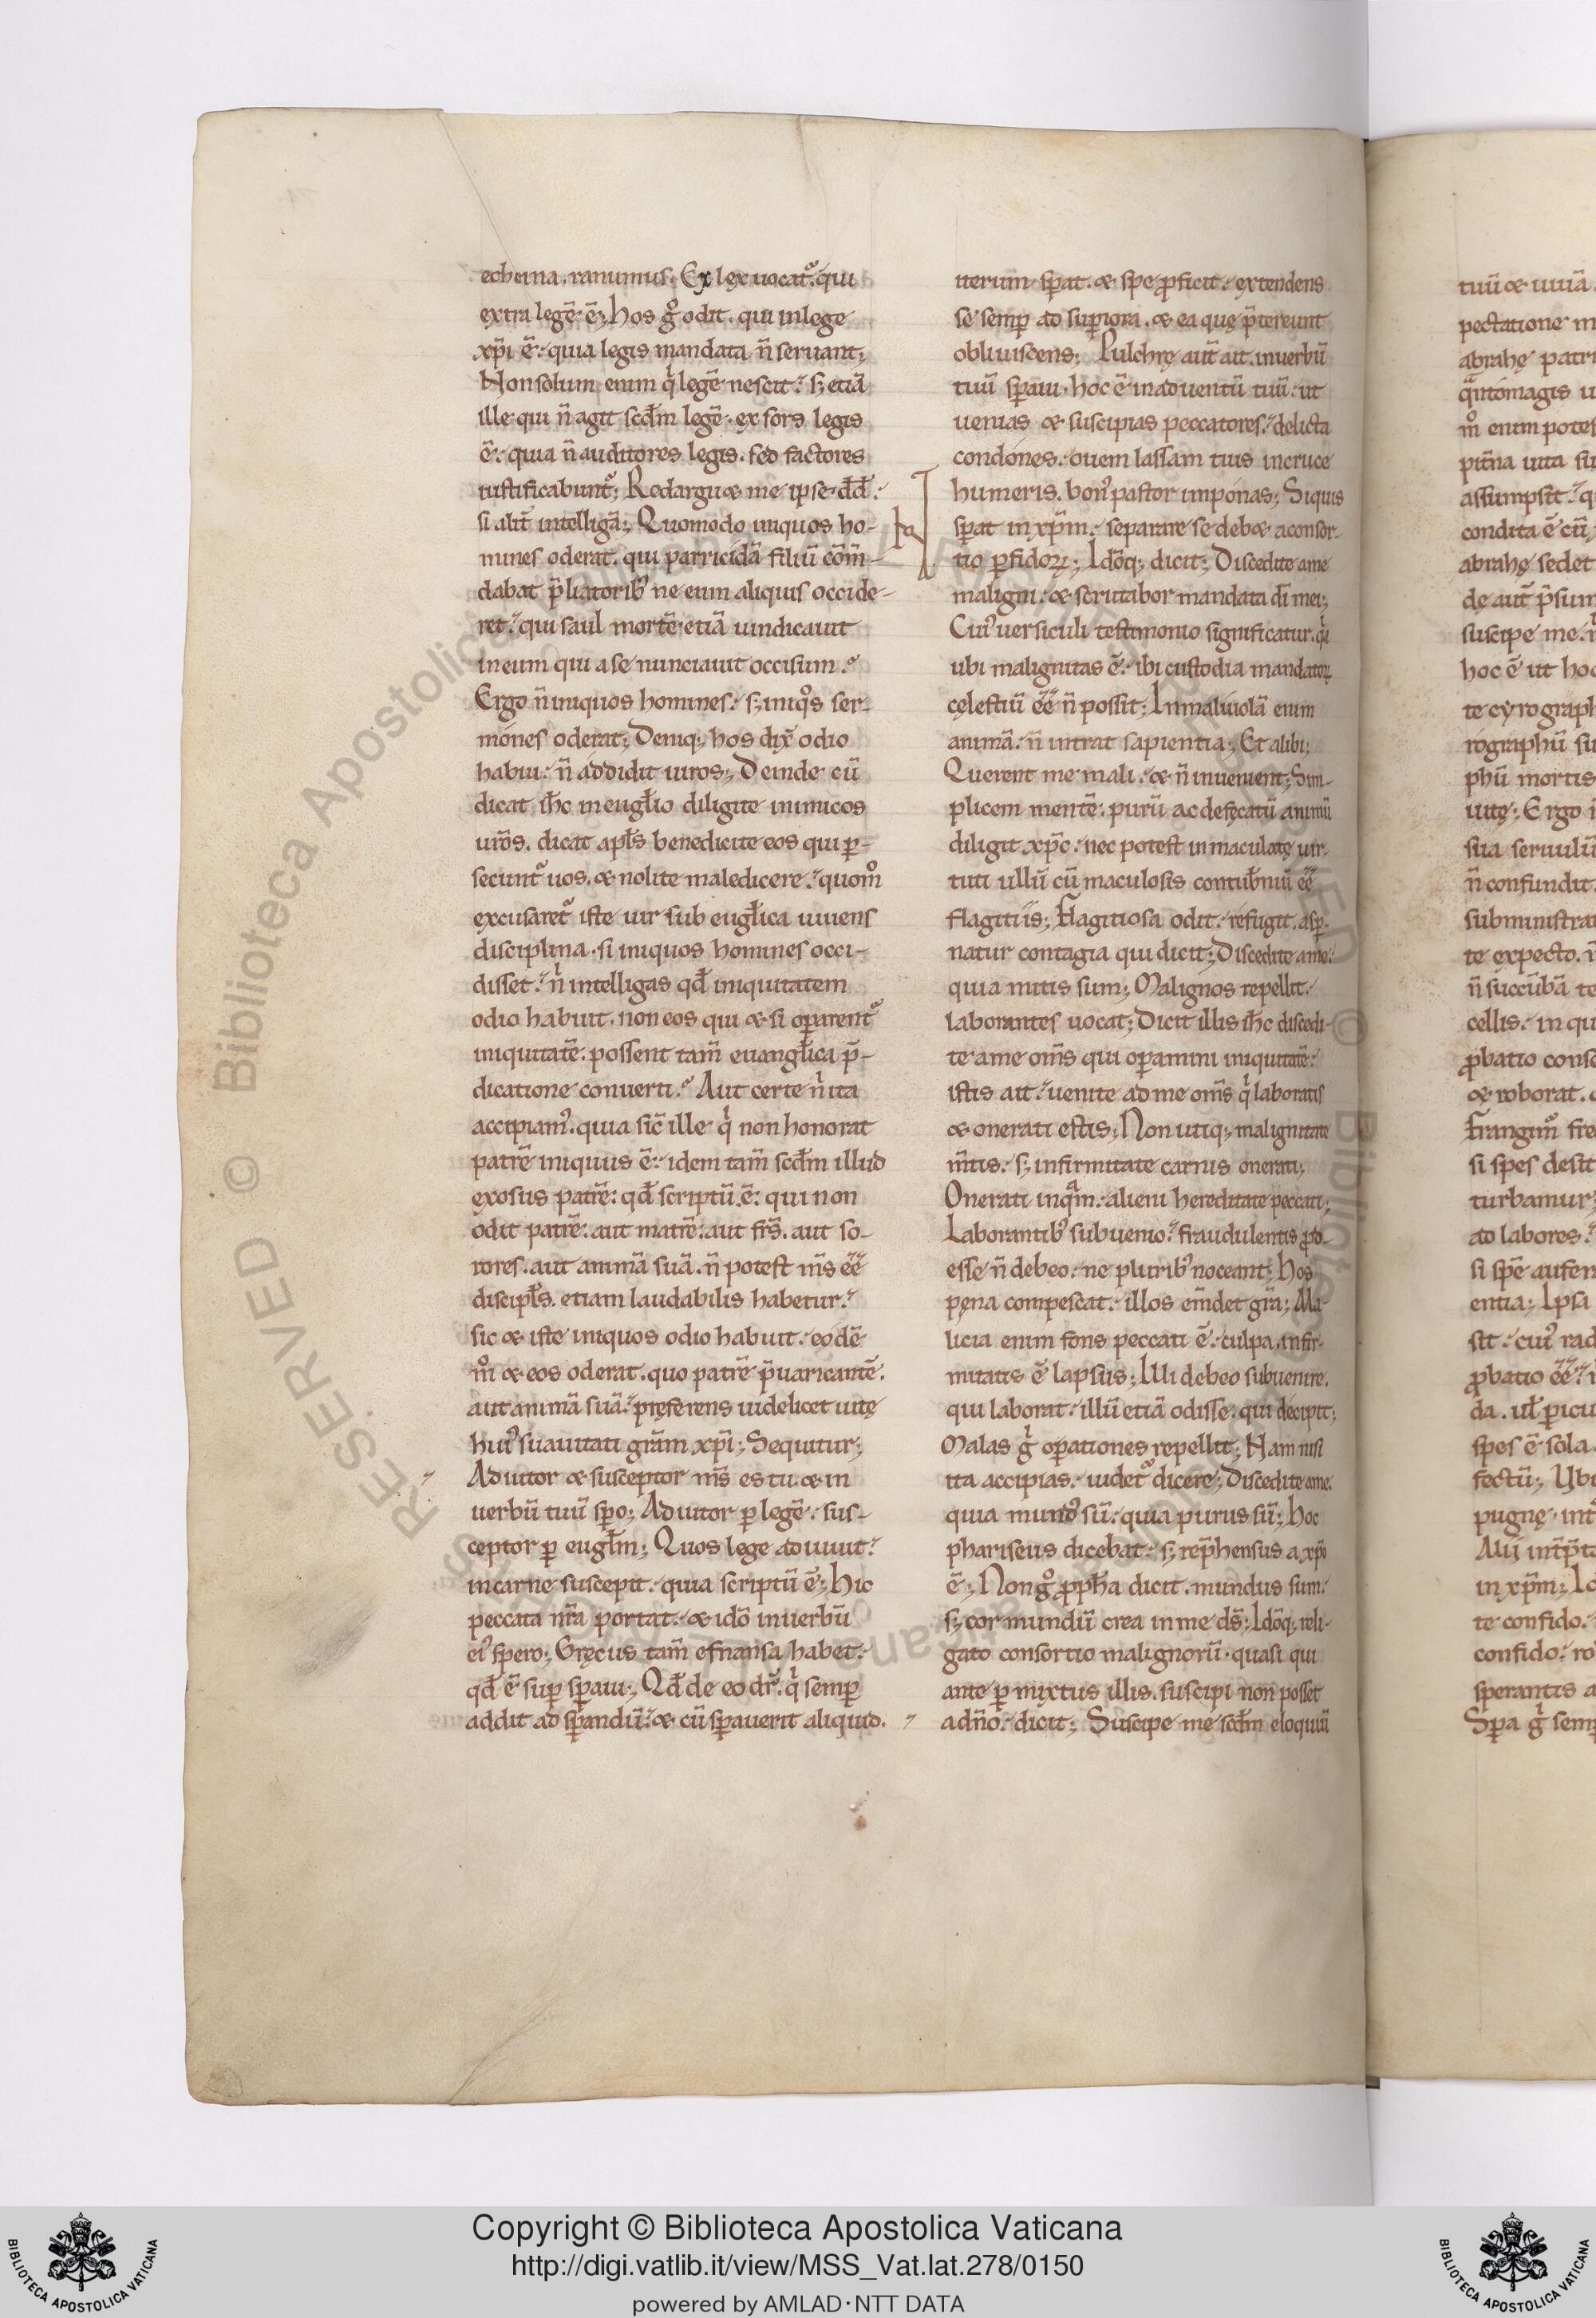 echeina. ranumus. Ex lex uocat᷑. qui
extra legē ē; Hos g̊ odit. qui inlege
xp̄i ē. quia legis mandata n̄ seruant;
Non solum enim q́ legē nescit. s; etiā
ille qui n̄ agit scd̄m legē. ex sors legis
ē. quia n̄ auditores legis. sed factores
iustificabunt᷑; Redarguæ me ipse dd̄.
si alit̄ intelligā; Quomodo iniquos ho-
mines oderat. qui parricidā filiū cōm̄-
dabat p̄liatorib; ne eum aliquis occide-
ret. qui saul mortē etiā uindicauit
in eum qui a se nunciauit occisum.
Ergo n̄ iniquos homines. s; iniq̊s ser-
mones oderat; Deniq; hos dix̄ odio
habui. n̄ addidit uiros; Deinde cū
dicat ih̄c in eugl̄io diligite inimicos
ur̄os. dicat apl̄s benedicite eos qui p̱-
secunt᷑ uos. & nolite maledicere. quom̊
excusaret᷑ iste uir sub eugl̄ica uiuens
disciplina. si iniquos homines occi-
disset. ń intelligas qd̄ iniquitatem
odio habuit. non eos qui & si op̱arent᷑
iniquitatē. possent tam̄ euangl̄ica p̄-
dicatione conuerti. Aut certe ń ita
accipiam᾽. quia sic̄ ille q́ non honorat
patrē iniquus ē. idem tam̄ scd̄m illud
exosus patrē. qd̄ scriptū ē. qui non
odit patrē. aut matrē. aut fr̄s. aut so-
rores. aut animā suā. n̄ potest m̄s eē
discipl̄s. etiam laudabilis habetur.
sic & iste iniquos odio habuit. eodē
m̊ & eos oderat. quo patrē p̄uaricantē.
aut animā suā. pręferens uidelicet uitę
hui᾽ suauitati grām xp̄i; Sequitur;
Adiutor & susceptor m̄s es tu. & in
uerbū tuū sp̱o; Adiutor p̱ legē. sus-
ceptor p̱ eugl̄m; Quos lege adiuuit.
in carne suscepit. quia scriptū ē; Hic
peccata nr̄a portat. & idō in uerbū
ei᾽ spero; Gręcus tam̄ efnansa habet.
qd̄ ē sup̱ sp̱aui; Qd̄ de eo dr̄. q́ semp̱
addit ad sp̱andū. & cū sp̱auerit aliquid.
iterum sp̱at. & spe ꝓficit. extendens
se semp̱ ad sup̱iora. & ea quę p̄tereunt
obliuiscens; Pulchrę aut̄ ait. in uerbū
tuū sp̱aui. hoc ē in aduentū tuū. ut
uenias & suscipias peccatores. delicta
condones. ouem lassam tuis in cruce
humeris. bon᾽ pastor imponas; Siquis
sp̱at in xp̄m. separare se debæ a consor-
tio p̱fidoꝝ; Idōq; dicit; Discedite a me
maligni. & scrutabor mandata dī mei;
Cui᾽ uersiculi testimonio significatur. q́a
ubi malignitas ē. ibi custodia mandatoꝝ
cęlestiū eē n̄ possit; In maliuolā enim
animā. n̄ intrat sapientia; Et alibi;
Querent me mali. & n̄ inuenient; Sim-
plicem mentē. purū ac defęcatū animū
diligit xp̄c. nec potest inmaculatę uir-
tuti ullū cū maculosis contub̄niū eē
flagitiis; Flagitiosa odit. refugit. asp̱-
natur contagia qui dicit; Discedite a me.
quia mitis sum; Malignos repellit.
laborantes uocat; Dicit illis ih̄c discedi-
te a me om̄s qui op̱amini iniquitatē.
istis ait. uenite ad me om̄s q́ laboratis
& onerati estis; Non utiq; malignitate
m̄tis. s; infirmitate carnis onerati;
Onerati inq̄m. alieni hereditate peccati;
Laborantib᾽ subuenio. fraudulentis ꝓd-
esse n̄ debeo. ne plurib᾽ noceant; Hos
pęna compescat. illos em̄det gr̄a; Ma-
licia enim fons peccati ē. culpa. infir-
mitatis ē lapsus; Illi debeo subuenire.
qui laborat. illū etiā odisse. qui decipit;
Malas ǵ op̱ationes repellit; Nam nisi
ita accipias. uidet᷑ dicere; Discedite a me.
quia mund᾽ sū. quia purus sū; Hoc
phariseus dicebat. s; rep̄hensus a xp̄o
ē; Non g̊ ꝓph̄a dicit. mundus sum.
s; cor mundū crea in me ds̄; Idōq; reli-
gato consortio malignorū. quasi qui
ante p̱mixtus illis. suscipi non posset
a dn̄o. dicit; Suscipe me scd̄m eloquiū
Copyright © Biblioteca Apostolica Vaticana
http://digi.vatlib.it/view/MSS_Vat.lat.278/0150
powered by AMLAD·NTT DATA